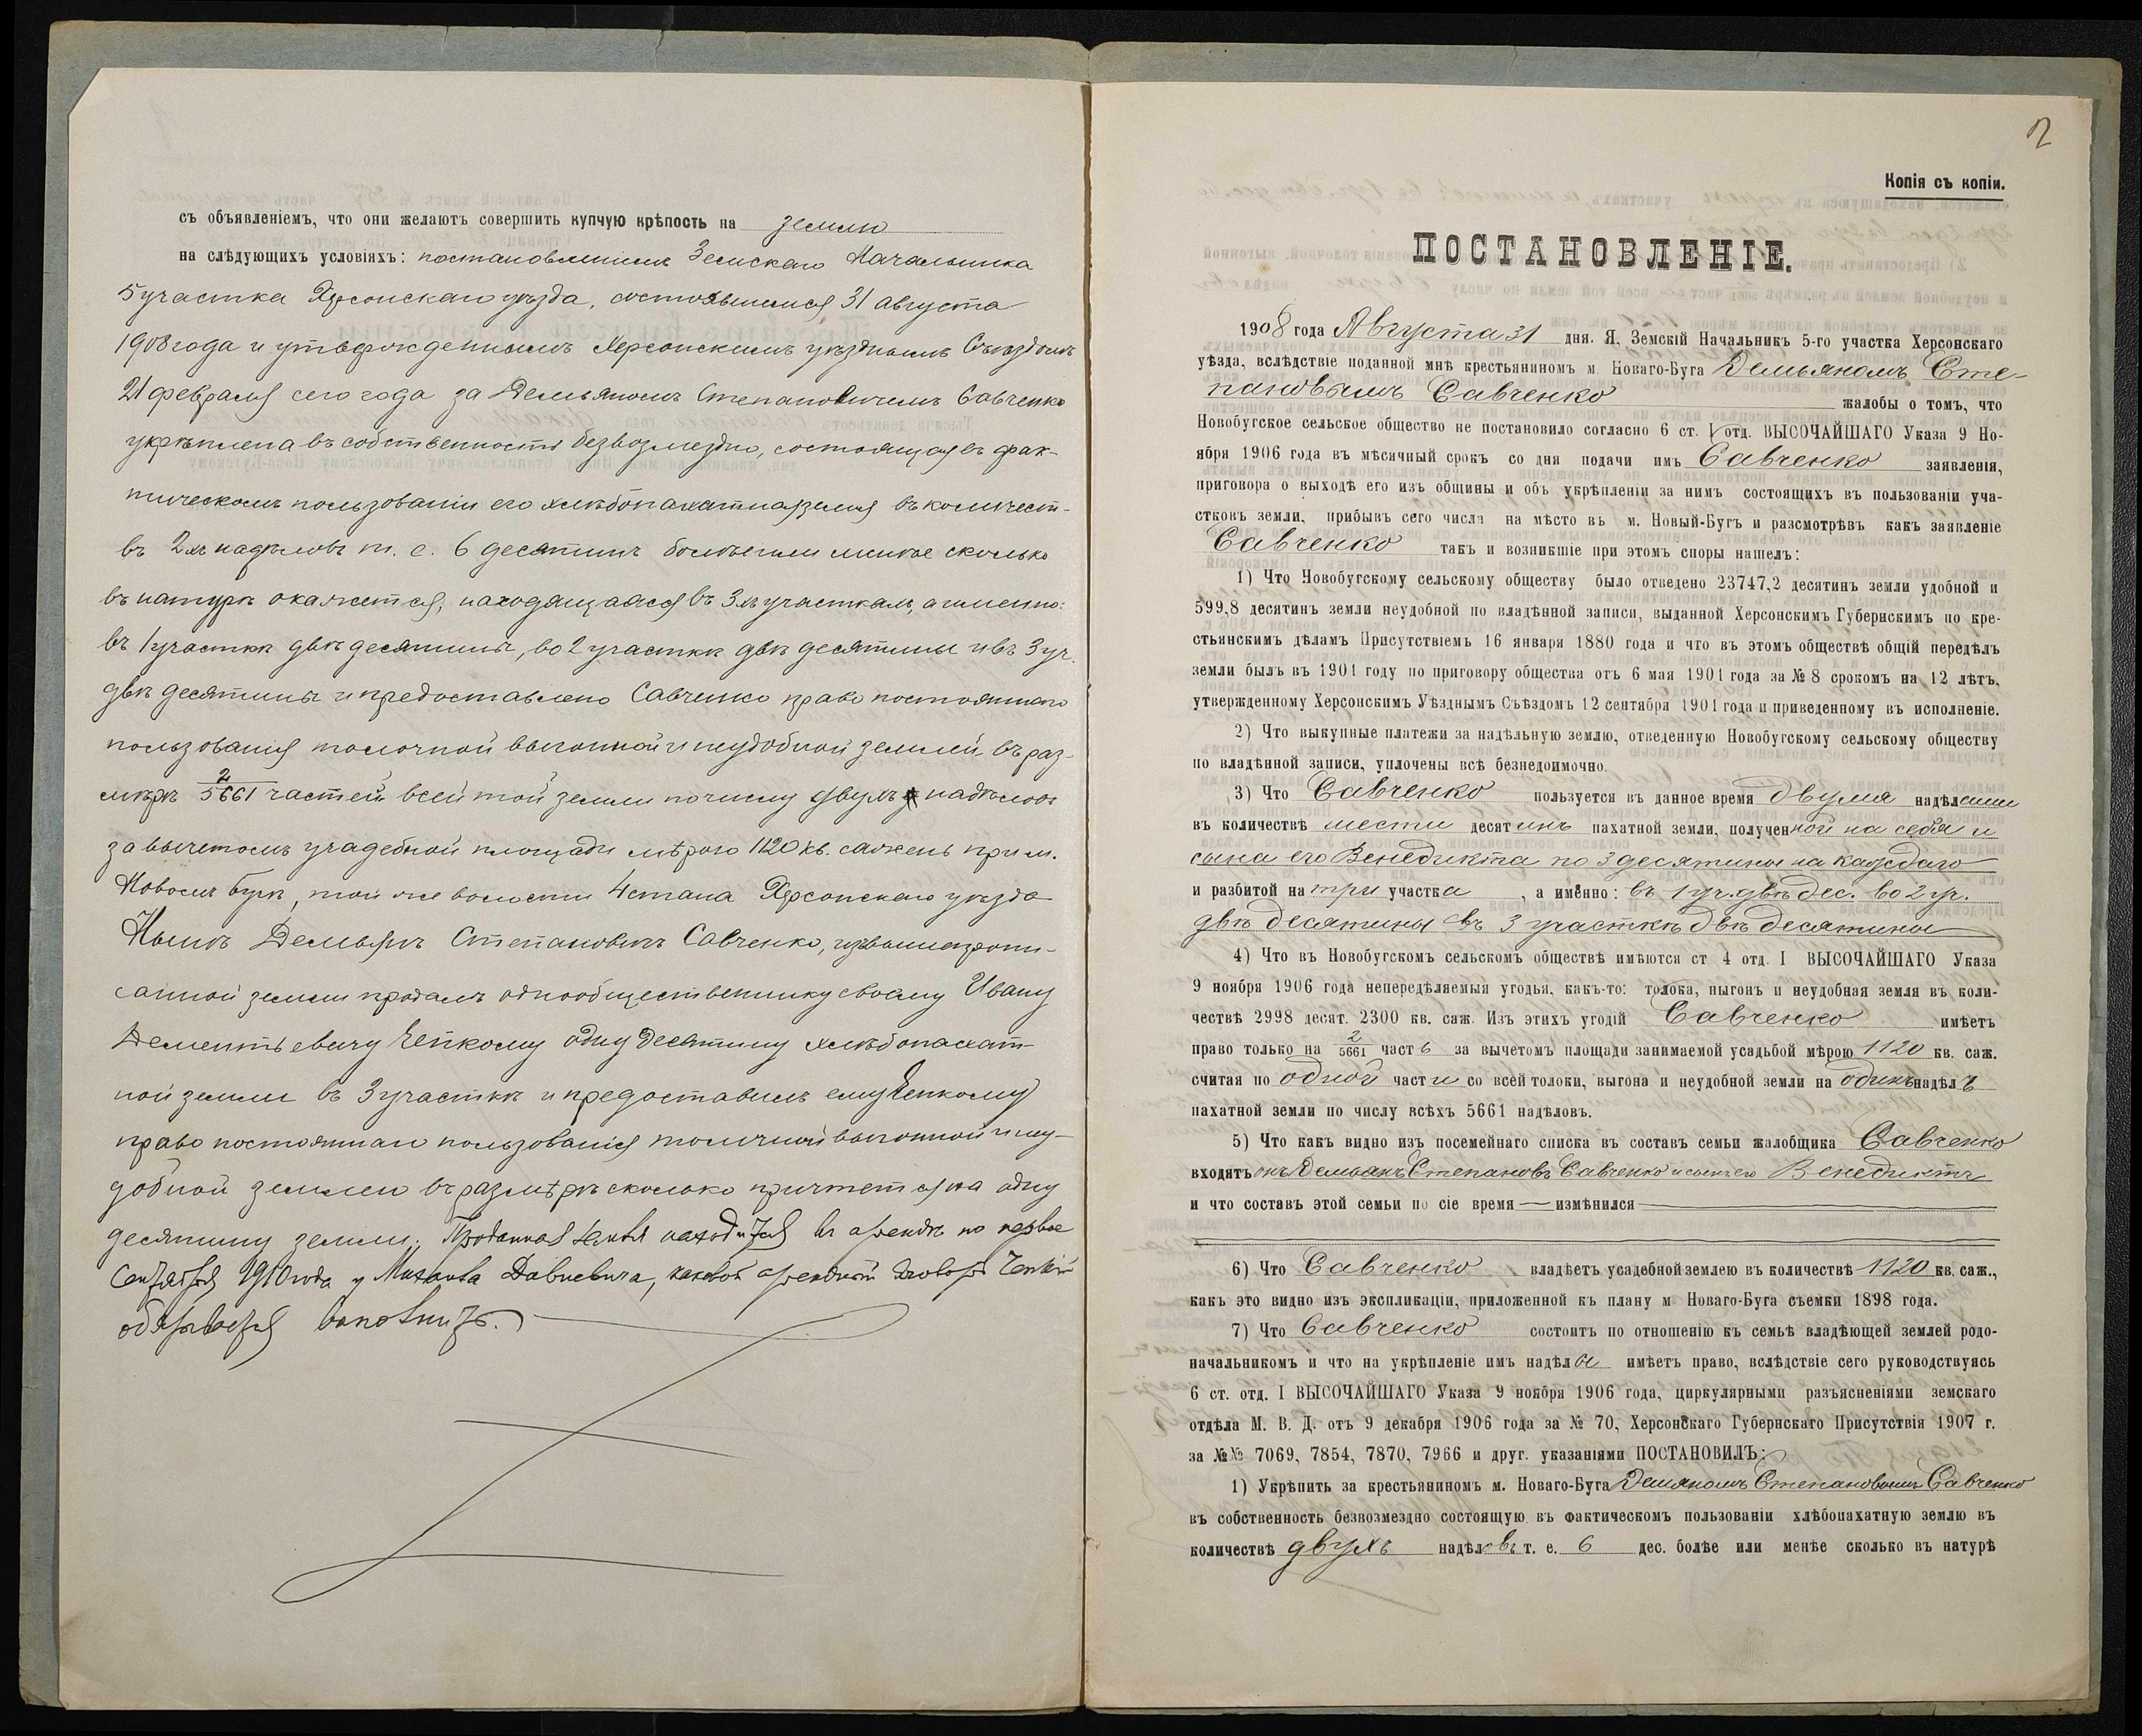 съ объявленіемъ, что они желаютъ совершить купчую крѣпость на землю
на слѣдующихъ условіяхъ: постановленіемъ Земскаго Начальника
5 участка Херсонскаго уѣзда, состоявшимся 31 августа
1908 года и утвержденнымъ Херсонскимъ уѣзднымъ Съѣздомъ
21 февраля сего года за Демьяномъ Степановичемъ Савченко
укрѣплена въ собственность безвозмездно, состоящая въ фак-
тическомъ пользованіи его хлѣбопахатная земля въ количест-
въ 2хъ надѣловъ т. е. 6 десятинъ болѣе или менѣе сколько
въ натурѣ окажется, находящаяся въ 3хъ участкахъ, а именно:
въ 1 участкѣ двѣ десятины, во 2 участкѣ двѣ десятины и въ 3 уч.
двѣ десятины и предоставлено Савченко право постояннаго
пользованія толочной выгонной и неудобной землей, въ раз-
мѣрѣ 2/5661 частей всей той земли по числу двухъ надѣловъ
за вычетомъ усадебной площади мѣрою 1120 кв. сажень при м.
Новомъ Бугѣ, той же волости 4 стана Херсонскаго уѣзда
Нынѣ Демьянъ Степановичъ Савченко, изъ вышепропи-
санной земли продалъ однообщественнику своему Ивану
Дементьевичу Чепкому одну десятину хлѣбопахат-
ной земли въ 3 участкѣ и предоставилъ ему Чепкому
право постояннаго пользованія толочной выгонной и неу-
добной землею въ размѣрѣ сколько причтется на одну
десятину земли. Проданная земля находится въ арендѣ по первое
Сентября 1910 года у Михаила Давиевича, каковой арендный договоръ Чепкій
обязывается выполнить.
2
Копія съ копіи.
ПОСТАНОВЛЕНІЕ.
1908 года Августа 31 дня. Я, Земскій Начальникъ 5-го участка Херсонскаго
уѣзда, вслѣдствіе поданной мнѣ крестьяниномъ м. Новаго-Буга Демьяномъ Сте-
пановымъ Савченко жалобы о томъ, что
Новобугское сельское общество не постановило согласно 6 ст. I отд. ВЫСОЧАЙШАГО Указа 9 Но-
ября 1906 года въ мѣсячный срокъ со дня подачи имъ Савченко заявленія,
приговора о выходѣ его изъ общины и объ укрѣпленіи за нимъ состоящихъ въ пользованіи уча-
стковъ земли, прибывъ сего числа на мѣсто въ м. Новый-Бугъ и разсмотрѣвъ какъ заявленіе
Савченко такъ и возникшіе при этомъ споры нашелъ:
1) Что Новобугскому сельскому обществу было отведено 23747,2 десятинъ земли удобной и
599,8 десятинъ земли неудобной по владѣнной записи, выданной Херсонскимъ Губернскимъ по кре-
стьянскимъ дѣламъ Присутствіемъ 16 января 1880 года и что въ этомъ обществѣ общій передѣлъ
земли былъ въ 1901 году по приговору общества отъ 6 мая 1901 года за № 8 срокомъ на 12 лѣтъ,
утвержденному Херсонскимъ Уѣзднымъ Съѣздомъ 12 сентября 1901 года и приведенному въ исполненіе.
2) Что выкупные платежи за надѣльную землю, отведенную Новобугскому сельскому обществу
по владѣнной записи, уплочены всѣ безнедоимочно.
3) Что Савченко пользуется въ данное время двумя надѣлами
въ количествѣ шести десятинъ пахатной земли, полученной на себя и
сына его Венедикта по 3 десятины на каждаго
и разбитой на три участка, а именно: въ 1 уч. двѣ дес. во 2 уч.
двѣ десятины въ 3 участкѣ двѣ десятины
4) Что въ Новобугскомъ сельскомъ обществѣ имѣются ст 4 отд. I ВЫСОЧАЙШАГО Указа
9 ноября 1906 года непередѣляемыя угодья, какъ-то: толока, выгонъ и неудобная земля въ коли-
чествѣ 2998 десят. 2300 кв. саж. Изъ этихъ угодій Савченко имѣетъ
право только на 2/5661 часть за вычетомъ площади занимаемой усадьбой мѣрою 1120 кв. саж.
считая по одной части со всей толоки, выгона и неудобной земли на одинъ надѣлъ
пахатной земли по числу всѣхъ 5661 надѣловъ.
5) Что какъ видно изъ посемейнаго списка въ составъ семьи жалобщика Савченко
входятъ онъ Демьянъ Степановъ Савченко и сынъ его Венедиктъ
и что составъ этой семьи по сіе время — измѣнился
6) Что Савченко владѣетъ усадебной землею въ количествѣ 1120 кв. саж.,
какъ это видно изъ экспликаціи, приложенной къ плану м Новаго-Буга съемки 1898 года.
7) Что Савченко состоитъ по отношенію къ семьѣ владѣющей землей родо-
начальникомъ и что на укрѣпленіе имъ надѣлы имѣетъ право, вслѣдствіе сего руководствуясь
6 ст. отд. I ВЫСОЧАЙШАГО Указа 9 ноября 1906 года, циркулярными разъясненіями земскаго
отдѣла М. В. Д. отъ 9 декабря 1906 года за № 70, Херсонскаго Губернскаго Присутствія 1907 г.
за №№ 7069, 7854, 7870, 7966 и друг. указаніями ПОСТАНОВИЛЪ:
1) Укрѣпить за крестьяниномъ м. Новаго-Буга Демяномъ Степановымъ Савченко
въ собственность безвозмездно состоящую въ фактическомъ пользованіи хлѣбопахатную землю въ
количествѣ двухъ надѣловъ т. е. 6 дес. болѣе или менѣе сколько въ натурѣ